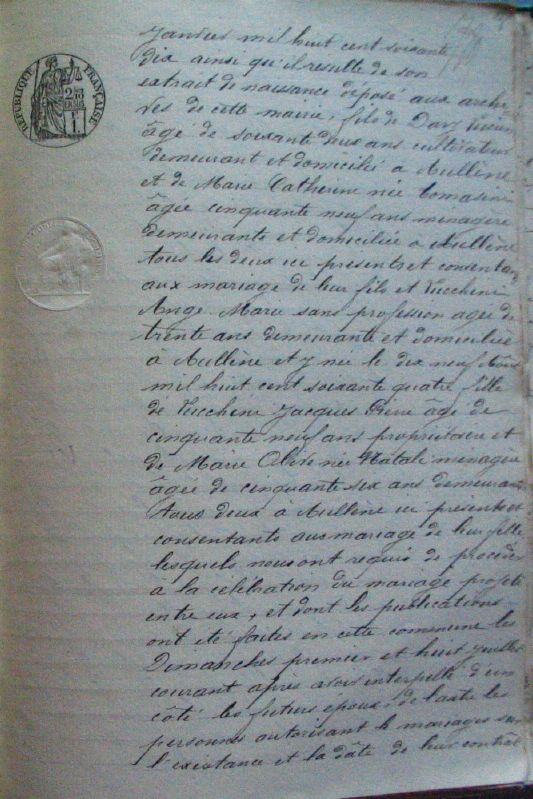 RÉPUBLIQUE FRANÇAISE
Janvier mil huit cent soixante
dix ainsi qu'il resulte de son
extrait de naissance déposé aux archi-
ves de cette mairie, fils de
âgé de soixante deux ans cultivateur
demeurant et domicilié à Aullène
et de Marie Catherine née Tomasini
âgée cinquante neuf ans ménagère
demeurante et domiciliée à Aullène
tous les deux ici presents et consentant
aux mariage de leur fils et Vuccheni
Ange Marie sans profession agée de
trente ans demeurante et domiciliée
à Aullène et y née le dix neuf Août
mil huit cent soixante quatre fille
de Vuccheni Jacques âgé de
cinquante neuf ans propriétaire et
de Marie née Natale ménagère
âgée de cinquante six ans demeurant
tous deux à Aullène ici presents et
consentants aux mariage de leur fille
lesquels nous ont requis de procéder
à la célébration du mariage projeté
entre eux, et dont les publications
ont été faites en cette commune les
Dimanches premier et huit Juillet
courant après avoir interpellé d'un
côté les futurs époux, de l'autre les
personnes autorisant le mariages sur
l'existance et la dâte de leur contrat